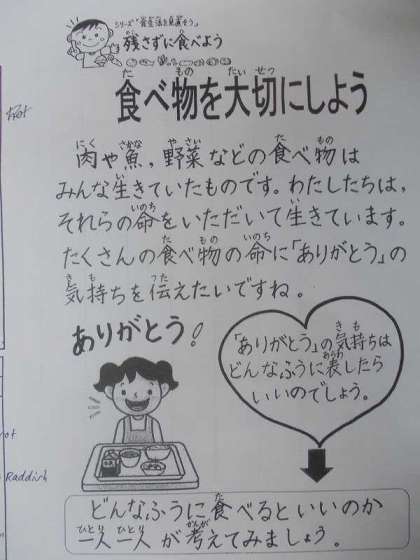 シリーズ「食生活を見直そう」
残さずに食べよう
食べ物を大切にしよう
肉や魚,野菜などの食べ物は
みんな生きていたものです。わたしたちは,
それらの命をいただいて生きています。
たくさんの食べ物の命に「ありがとう」の
気持ちを伝えたいですね。
ありがとう!
「ありがとう」の気持ちは
どんなふうに表したら
いいのでしょう。
どんなふうに食べるといいのか
一人一人が考えてみましょう。
Raddish